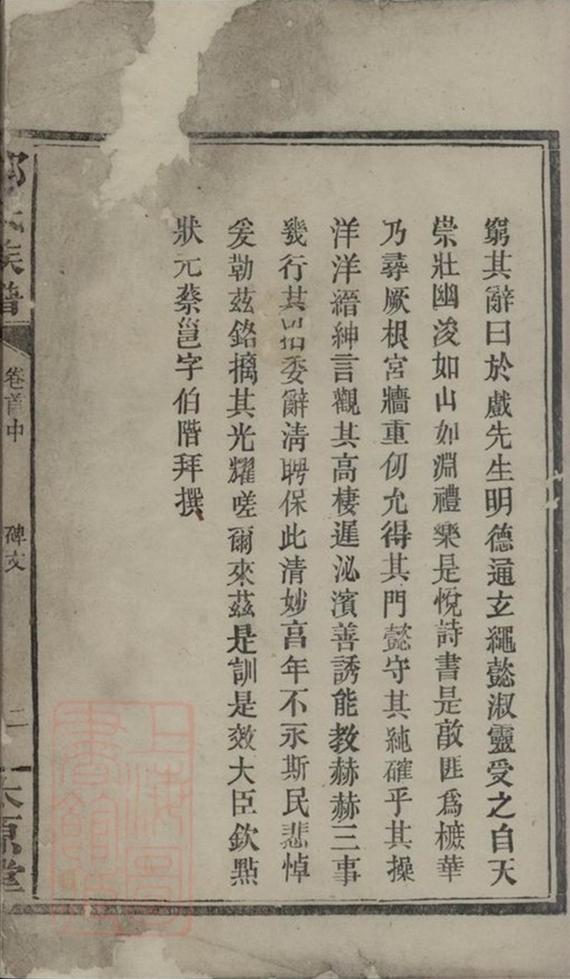 窮其辭曰於戲先生明德通玄繩懿淑靈受之自天
崇壯幽浚如山如淵禮樂是悅詩書是敦匪爲摭華
乃尋厥根宮牆重仞允得其門懿守其純確乎其操
洋洋縉紳言觀其高棲遲泌濱善誘能教赫赫三事
幾行其招委辭清聘保此清妙亯年不永斯民悲悼
爰勒茲銘摛其光耀嗟爾來茲是訓是效大臣欽點
狀元蔡邕字伯階拜撰
族譜
卷首中
碑文
二
太原堂
上海圖書館藏